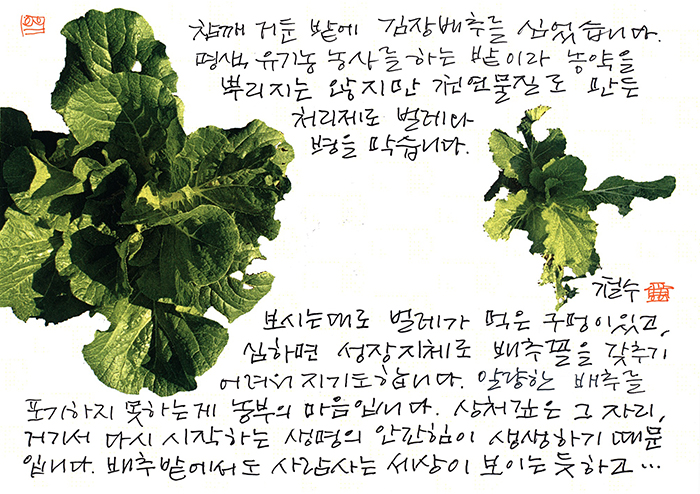 참깨 거둔 밭에 김장배추를 심었습니다.
명색 유기농 농사를 하는 밭이라 농약을
뿌리지는 않지만 천연물질로 만든
처리제로 벌레나
병을 막습니다.
철수
보시는대로 벌레가 먹은 구멍이 있고,
심하면 성장지체로 배추꼴을 갖추기
어려워지기도 합니다. 알량한 배추를
포기하지 못하는게 농부의 마음입니다. 상처깊은 그 자리,
거기서 다시 시작하는 생명의 안간힘이 생생하기 때문
입니다. 배추밭에서도 사람사는 세상이 보이는 듯하고...